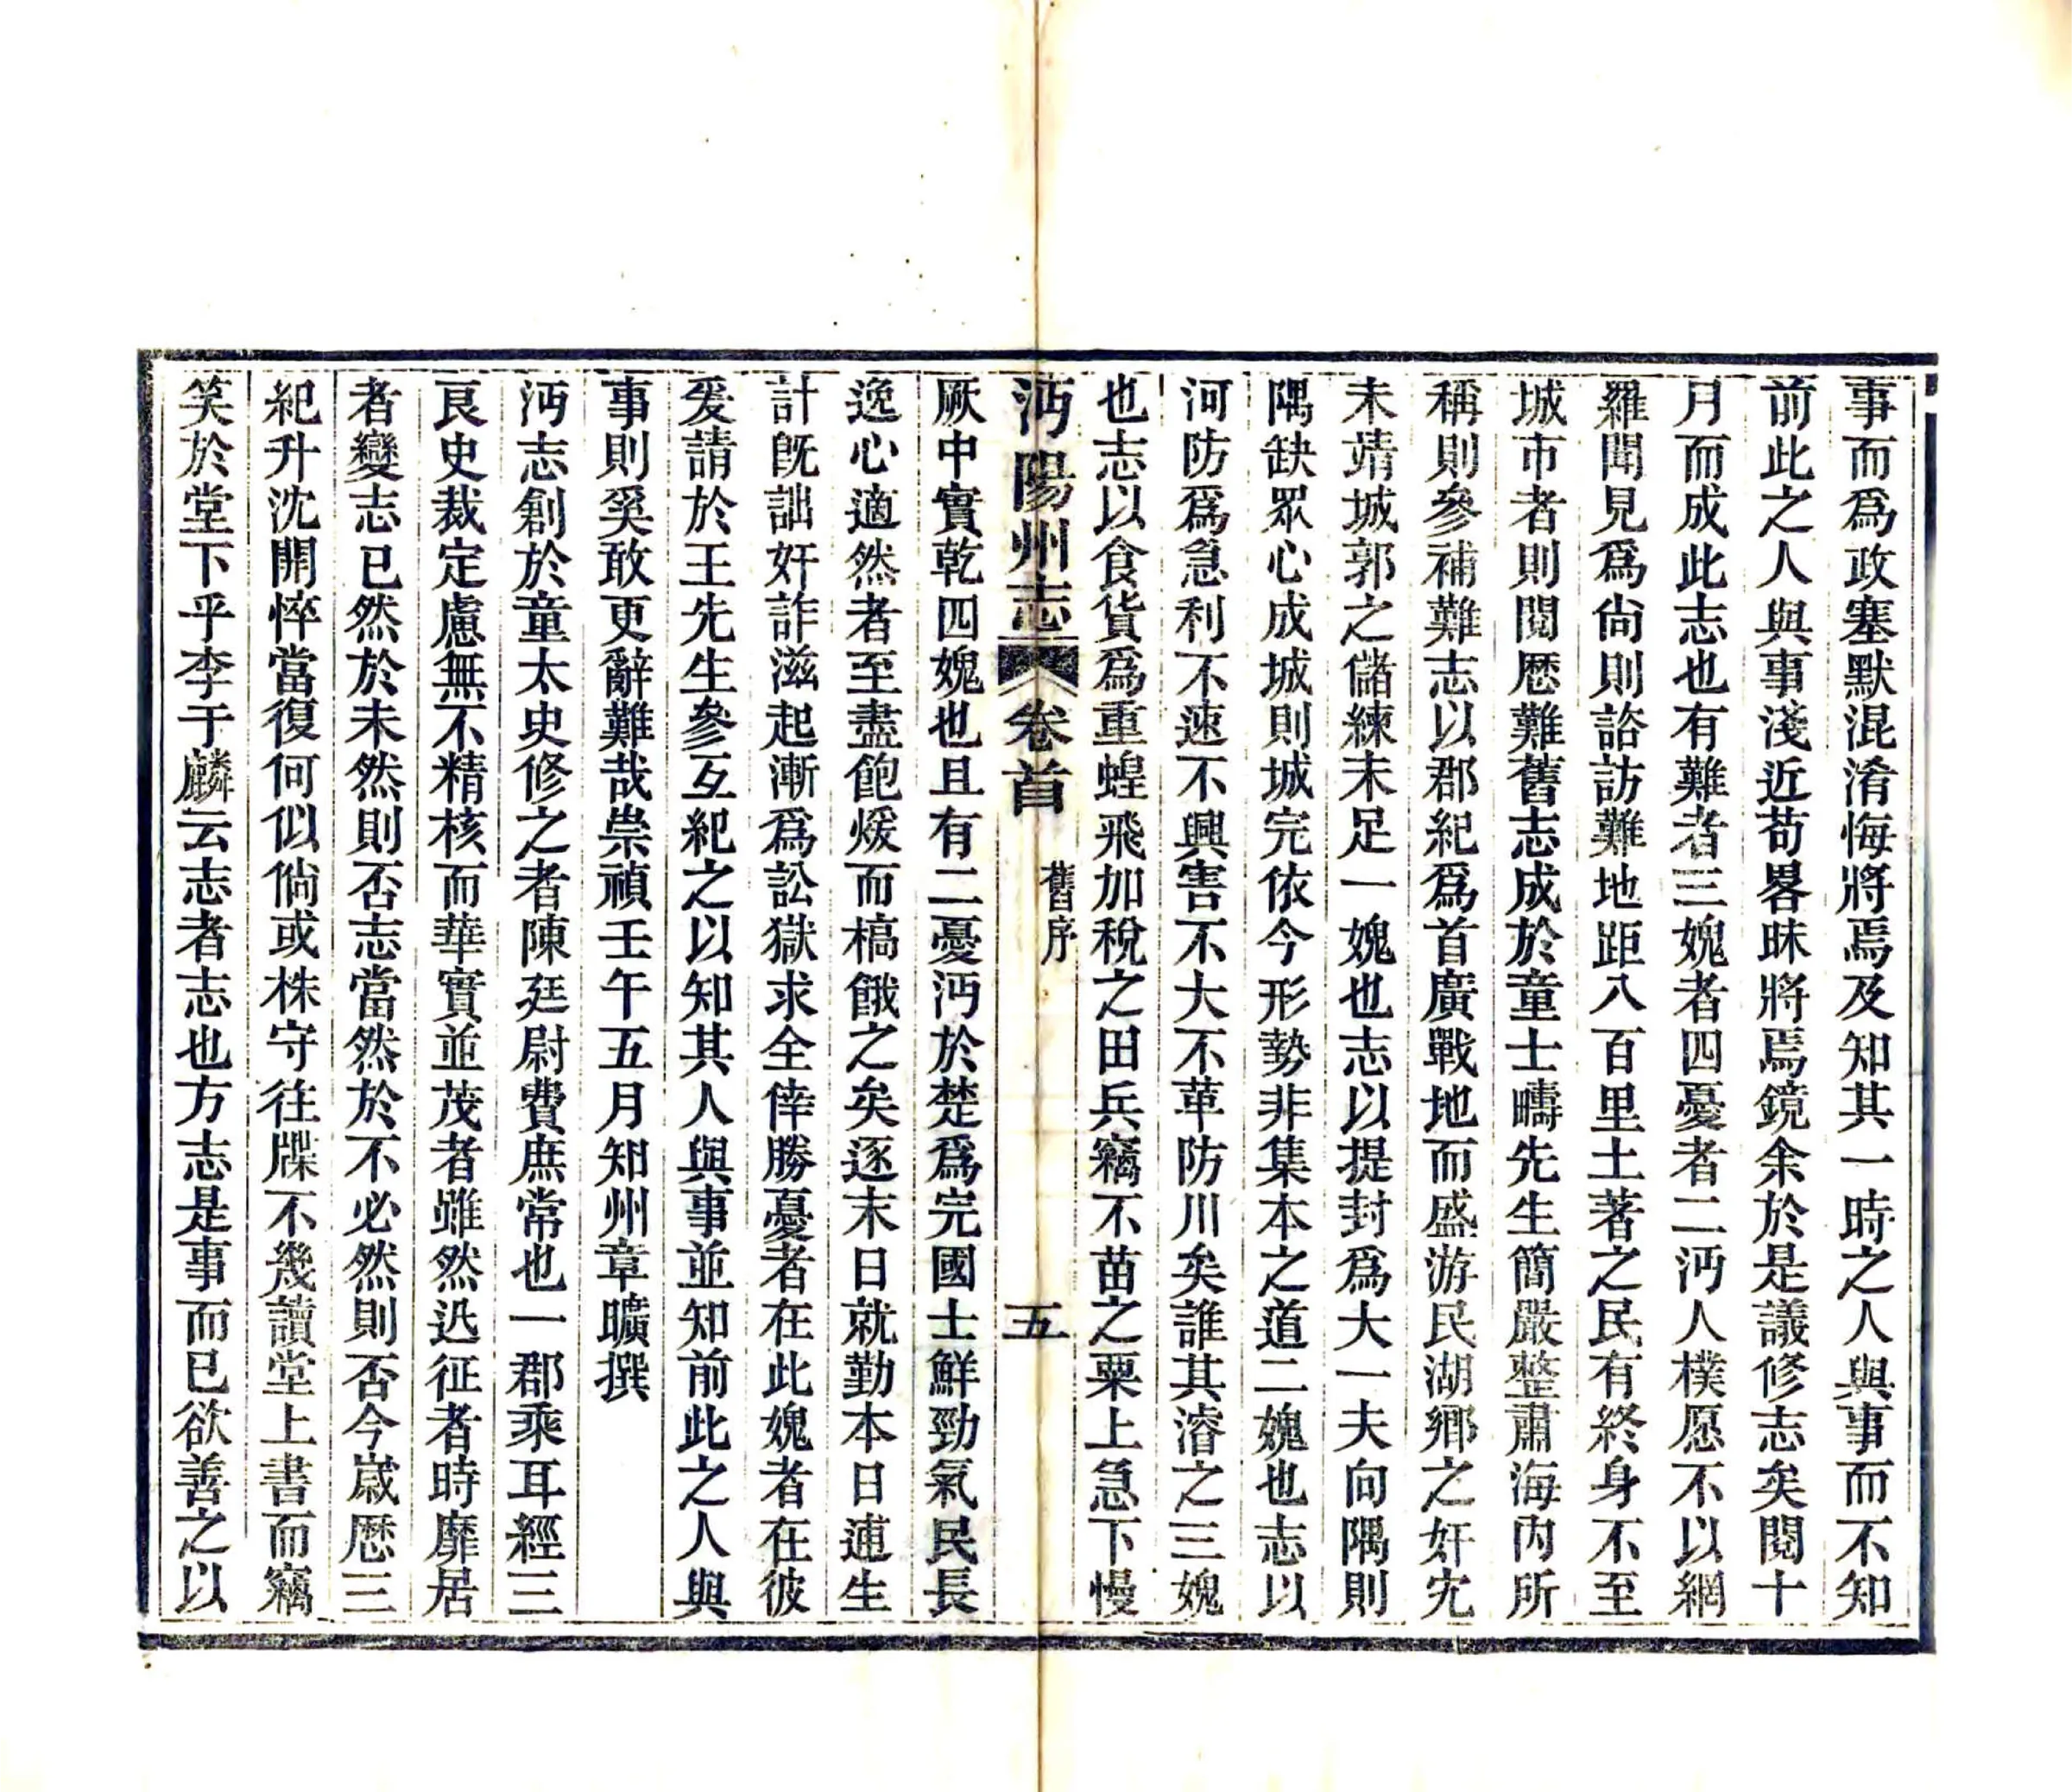 事而爲政塞默混淆悔將焉及知其一時之人與事而不知
前此之人與事淺近苟畧昧將焉鏡余於是議修志矣閱十
月而成此志也有難者三媿者四憂者二沔人樸愿不以網
羅聞見爲尙則諮訪難地距八百里土著之民有終身不至
城市者則閱歷難舊志成於童士疇先生簡嚴整肅海內所
稱則參補難志以郡紀爲首廣戰地而盛游民湖鄉之奸宄
未靖城郭之儲練未足一媿也志以提封爲大一夫向隅則
隅缺眾心成城則城完依今形勢非集本之道二媿也志以
河防爲急利不速不興害不大不革防川矣誰其濬之三媿
也志以食貨爲重蝗飛加稅之田兵竊不苗之粟上急下慢
沔陽州志 卷首 舊序 五
厥中實乾四媿也且有二憂沔於楚爲完國士鮮勁氣民長
逸心適然者至盡飽煖而槁餓之矣逐末日就勤本日連生
計旣詘奸詐滋起漸爲訟獄求全倖勝憂者在此媿者在彼
爰請於王先生參互紀之以知其人與事並知前此之人與
事則奚敢更辭難哉崇禎壬午五月知州章曠撰
沔志創於童太史修之者陳廷尉費庶常也一郡乘耳經三
良史裁定慮無不精核而華實並茂者雖然迭征者時靡居
者變志已然於未然則否志當然於不必然則否今歲歷三
紀升沈開悴當復何似倘或株守往牒不幾讀堂上書而竊
笑於堂下乎李于麟云志者志也方志是事而已欲善之以